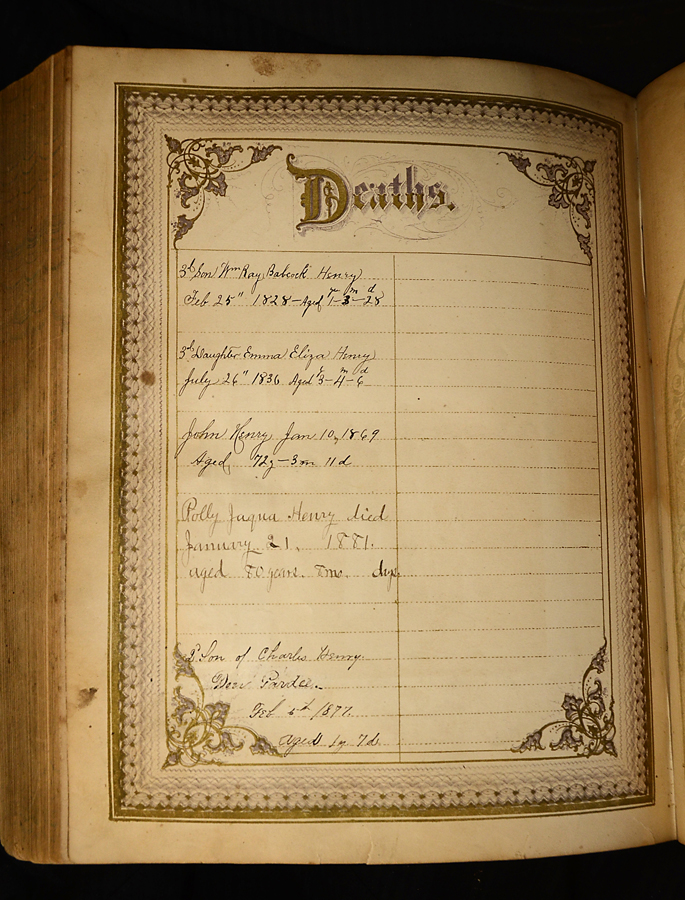 Deaths.
3d Son Wm Ray Babcock Henry
Feb 25" 1828 - Aged 1y-3m-28d
3d Daughter Emma Eliza Henry
July 26" 1836 Aged 3y-4m-6d
John Henry Jan 10, 1869
Aged 72y-3m 11d
Polly Juqua Henry died
January 21, 1881.
aged 80 years. 8mo. dys.
2d Son of Charles Henry
Pardee
Feb 5th 1877
Aged 1y 7d